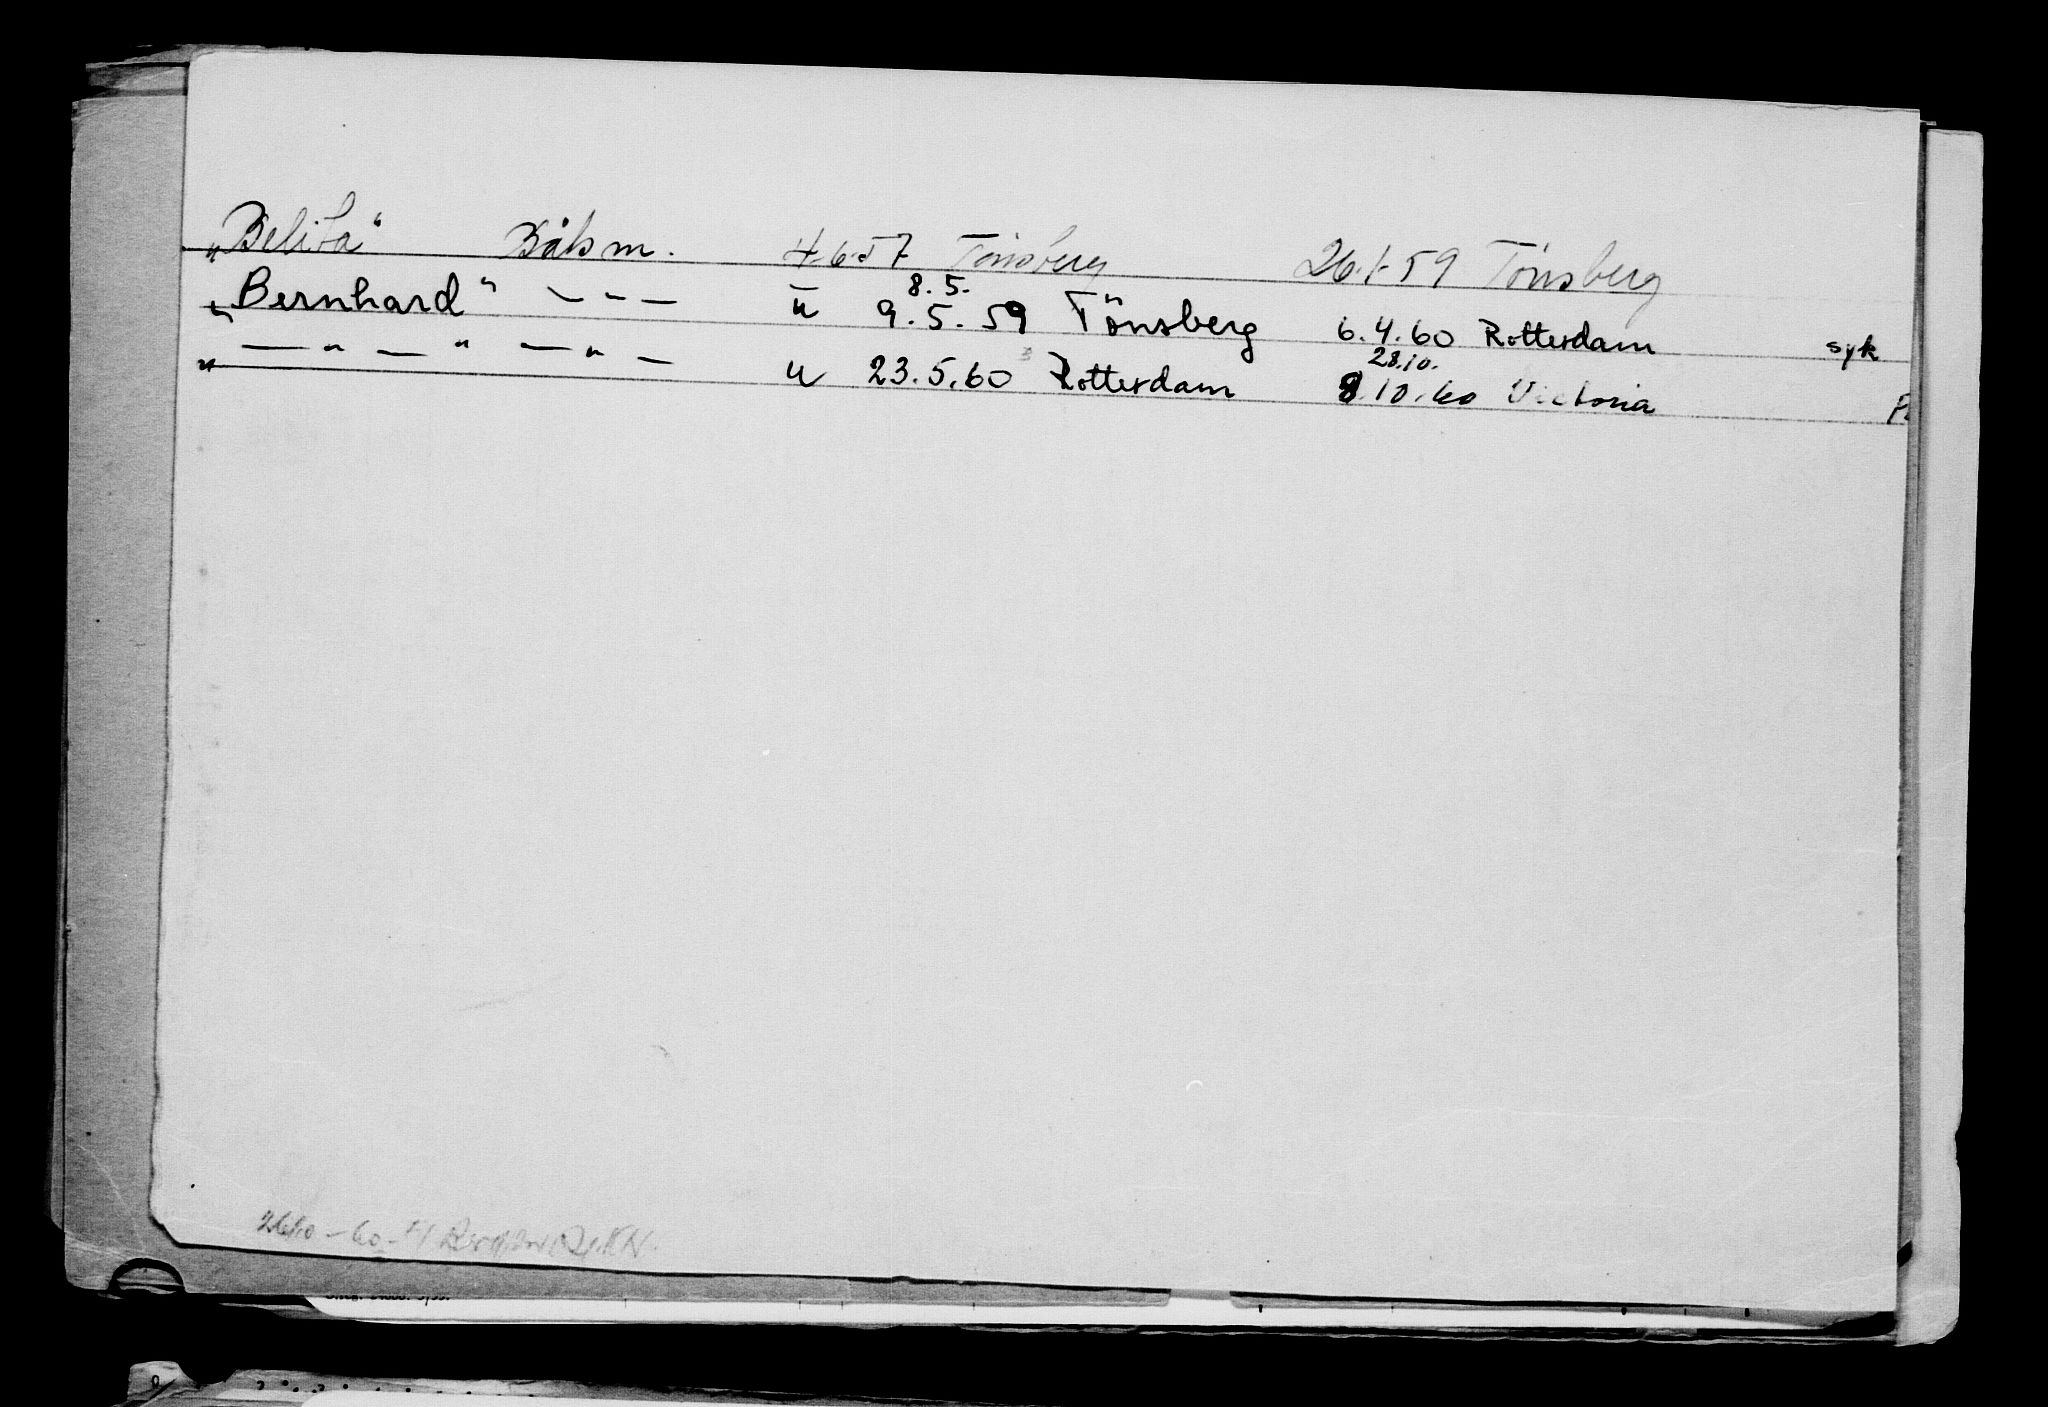 "Belita" Båtsm. 4-6-57 Tönsberg 26.1-59 Tönsberg
8.5.
"Bernhard" — " — u 9.5.59 Tönsberg 6.4.60 Rotterdam syk
28.10.
" — " — " — " — u 23.5.60 Rotterdam 8.10.60 Victoria